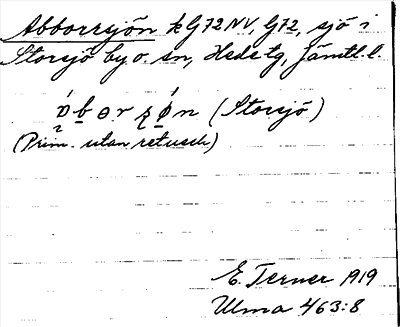 Abborrsjön kG72NV, G72, sjö i
Storsjö by o. sn, Hede tg, Jämtl. l.
(Storsjö)
(Prim. utan retusch)
E. Terner 1919
Ulma 463:8